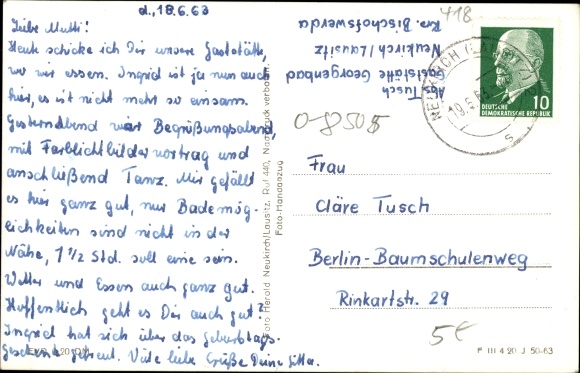 d., 18.6.63
Liebe Mutti!
Heute schicke ich Dir unsere Gaststätte,
wo wir essen. Ingrid ist ja nun auch
hier, es ist nicht mehr so einsam.
Gesternabend war Begrüßungsabend,
mit Farblichtbildervortrag und
anschließend Tanz. Mir gefällt
es hier ganz gut, nur Bademög-
lichkeiten sind nicht in der
Nähe, 1 1/2 Std. soll eine sein.
Wetter und Essen auch ganz gut.
Hoffentlich geht es Dir auch gut?
Ingrid hat sich über das Geburtstags-
geschenk gefreut. Viele liebe Grüße Deine
Abs. Tusch
Gaststätte Georgenbad
Neukirch/Lausitz
Krs. Bischofswerda
418
NEUKIRCH (LAUSITZ)
19.6.63
DEUTSCHE
DEMOKRATISCHE REPUBLIK
10
0-8505
Foto Herold Neukirch/Lausitz, Ruf 440, Nachdruck verboten.
Foto-Handabzug
Frau
Cläre Tusch
Berlin-Baumschulenweg
Rinkartstr. 29
5€
P III 4 20 J 50-63